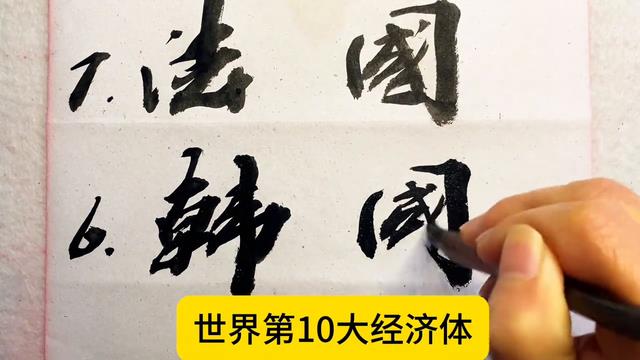 7.法國
6.韩國
世界第10大经济体